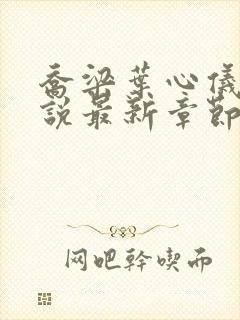 喬梁葉心儀
說最新章節
网吧幹喫而